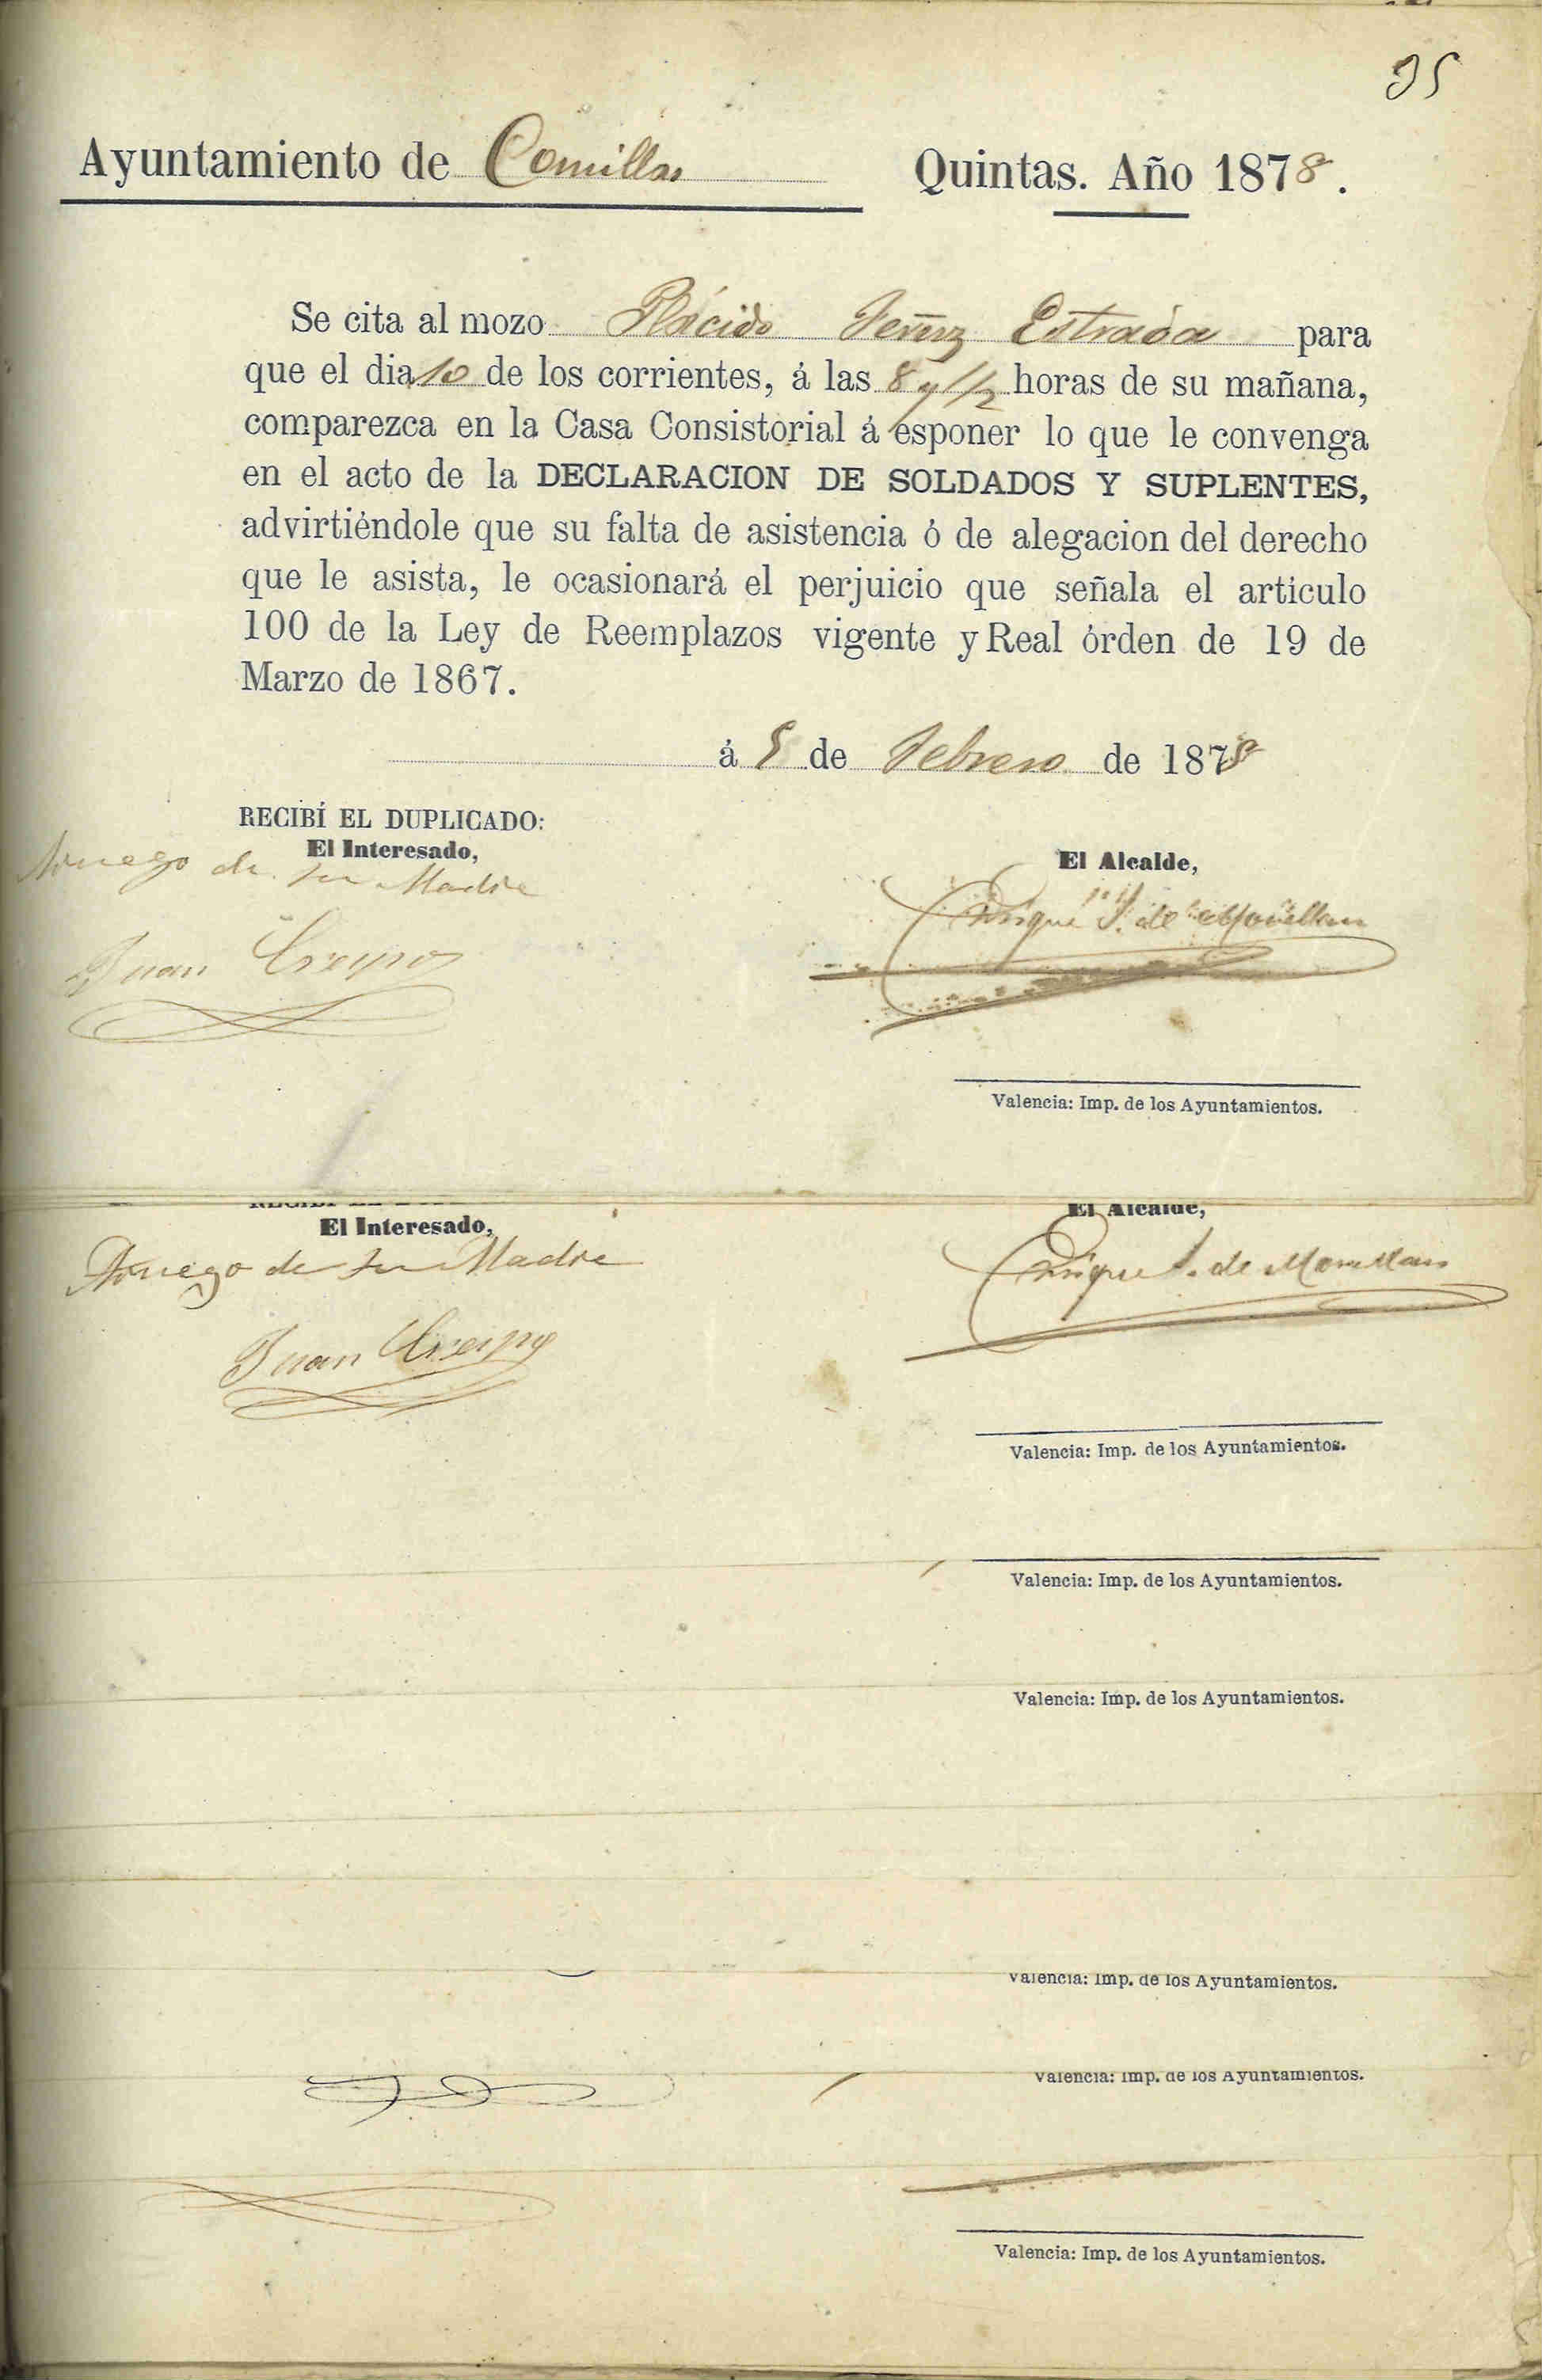 35
Ayuntamiento de Comillas Quintas. Año 1878.
Se cita al mozo Plácido Estrada para
que el dia 10 de los corrientes, á las 8 y 1/2 horas de su mañana,
comparezca en la Casa Consistorial á esponer lo que le convenga
en el acto de la DECLARACION DE SOLDADOS Y SUPLENTES,
advirtiéndole que su falta de asistencia ó de alegacion del derecho
que le asista, le ocasionará el perjuicio que señala el articulo
100 de la Ley de Reemplazos vigente y Real órden de 19 de
Marzo de 1867.
á 5 de Febrero de 1878
RECIBÍ EL DUPLICADO:
El Interesado,
El Alcalde,
A ruego de su Madre
Enrique S. de Movellan
Juan Crespo
Valencia: Imp. de los Ayuntamientos.
El Alcalde,
El Interesado,
A ruego de su Madre
Enrique S. de Movellan
Juan Crespo
Valencia: Imp. de los Ayuntamientos.
Valencia: Imp. de los Ayuntamientos.
Valencia: Imp. de los Ayuntamientos.
Valencia: Imp. de los Ayuntamientos.
Valencia: Imp. de los Ayuntamientos.
Valencia: Imp. de los Ayuntamientos.